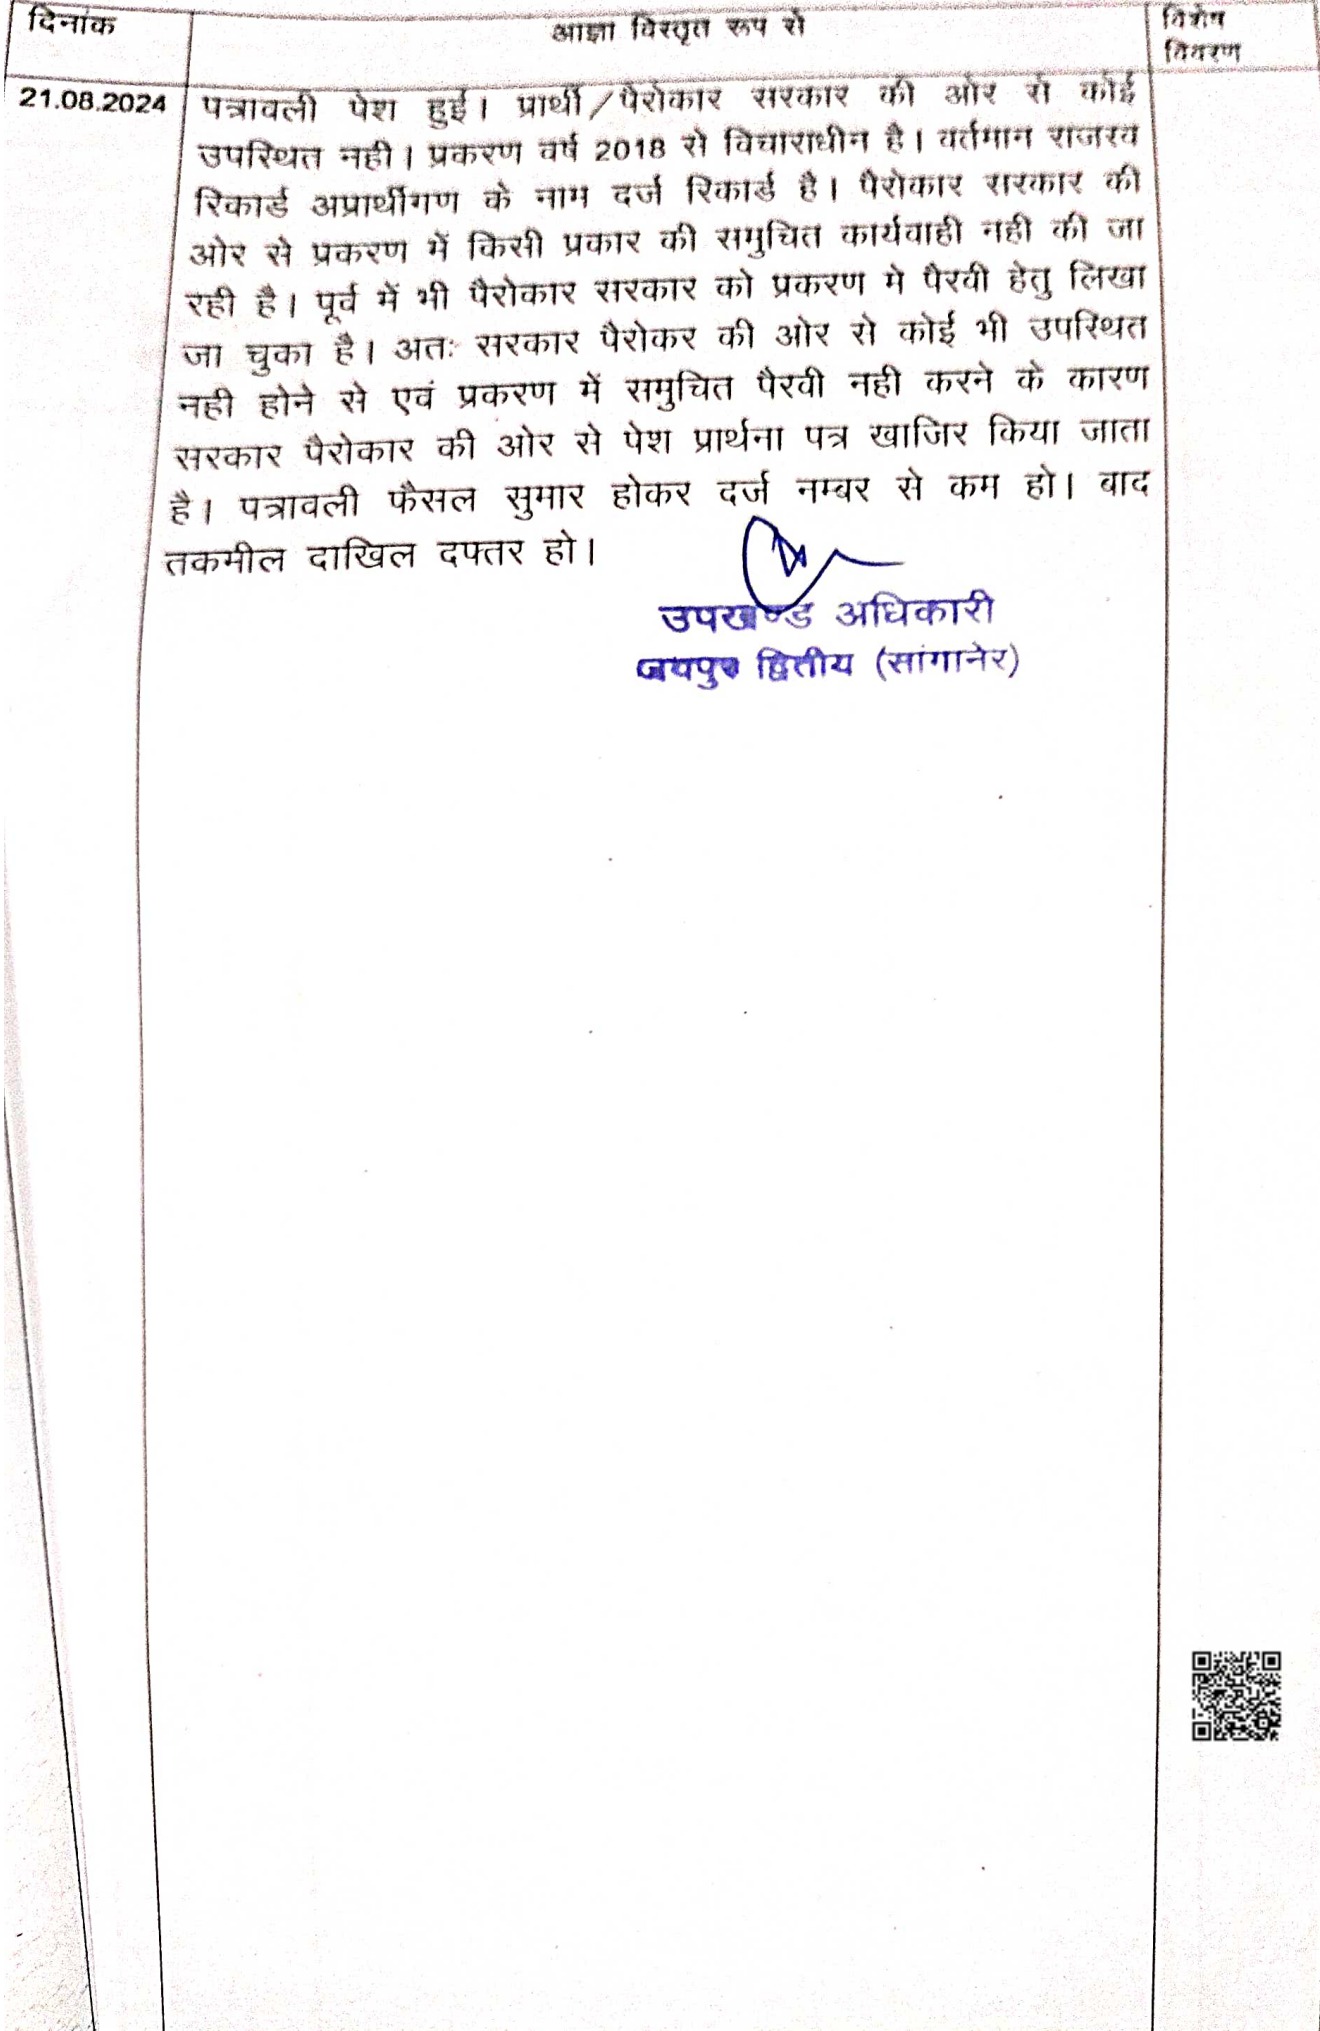 दिनांक
आज्ञा विस्तृत रूप से
विशेष
विवरण
21.08.2024
पत्रावली पेश हुई। प्रार्थी/पैरोकार सरकार की ओर से कोई
उपस्थित नही। प्रकरण वर्ष 2018 से विचाराधीन है। वर्तमान राजस्व
रिकार्ड अप्रार्थीगण के नाम दर्ज रिकार्ड है। पैरोकार सरकार की
ओर से प्रकरण में किसी प्रकार की समुचित कार्यवाही नही की जा
रही है। पूर्व में भी पैरोकार सरकार को प्रकरण मे पैरवी हेतु लिखा
जा चुका है। अतः सरकार पैरोकर की ओर से कोई भी उपस्थित
नही होने से एवं प्रकरण में समुचित पैरवी नही करने के कारण
सरकार पैरोकार की ओर से पेश प्रार्थना पत्र खाजिर किया जाता
है। पत्रावली फैसल सुमार होकर दर्ज नम्बर से कम हो। बाद
तकमील दाखिल दफ्तर हो।
उपखण्ड अधिकारी
जयपुर द्वितीय (सांगानेर)